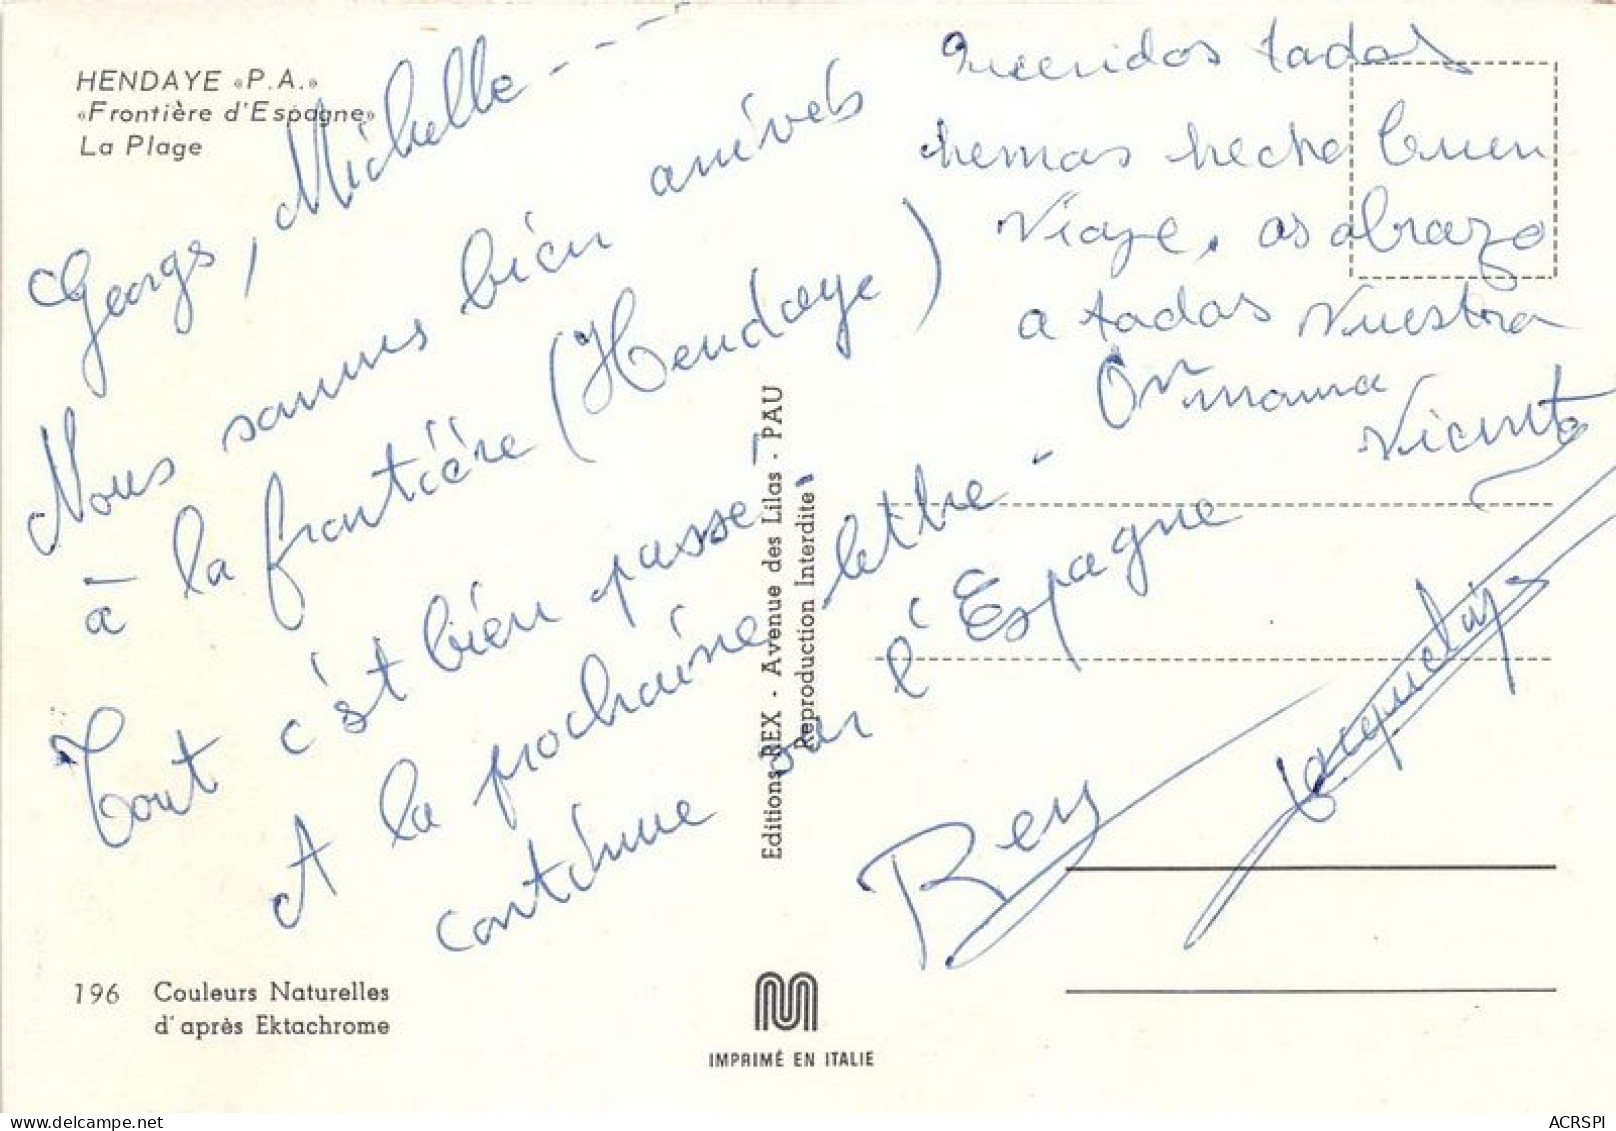 HENDAYE «P.A.»
«Frontière d'Espagne»
La Plage
Georgs, Michelle - - - -
Nous sommes bien arrivés
à la frontière (Hendaye)
Tout c'est bien passé
A la prochaine lettre -
continue sur l'Espagne
Queridos todos
hemos hecho buen
Viaje, os abrazo
a todos Vuestra
mama
Vicenta
Rey
196 Couleurs Naturelles
d'après Ektachrome
Editions REX - Avenue des Lilas - PAU
Reproduction Interdite
IMPRIMÉ EN ITALIE
ACRSPI